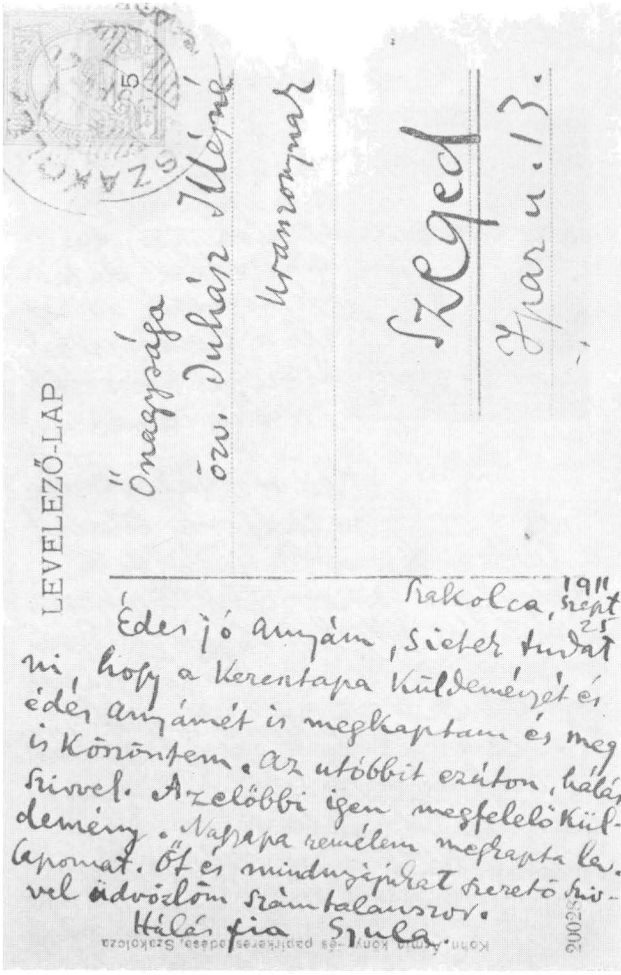 LEVELEZŐ-LAP
SZAKOLC
5
Őnagysága
özv. Juhász Illésné
úrasszonynak
Szeged
Ipar u. 13.
Szakolca, 1911
szept
25
Édes jó anyám, sietek tudat
ni, hogy a Keresztapa Küldeményét és
édes anyámét is megkaptam és meg
is Köszöntem. az utóbbit ezúton, hálás
szivvel. Azelőbbi igen megfelelő Kül-
demény. Nagyapa remélem megkapta lev.
lapomat. Őt és mindnyájukat szerető sziv-
vel üdvözlöm számtalanszor.
Hálás fia Gyula.
Kohn Ármin könyv- és papirkereskedése, Szakolcza
20028